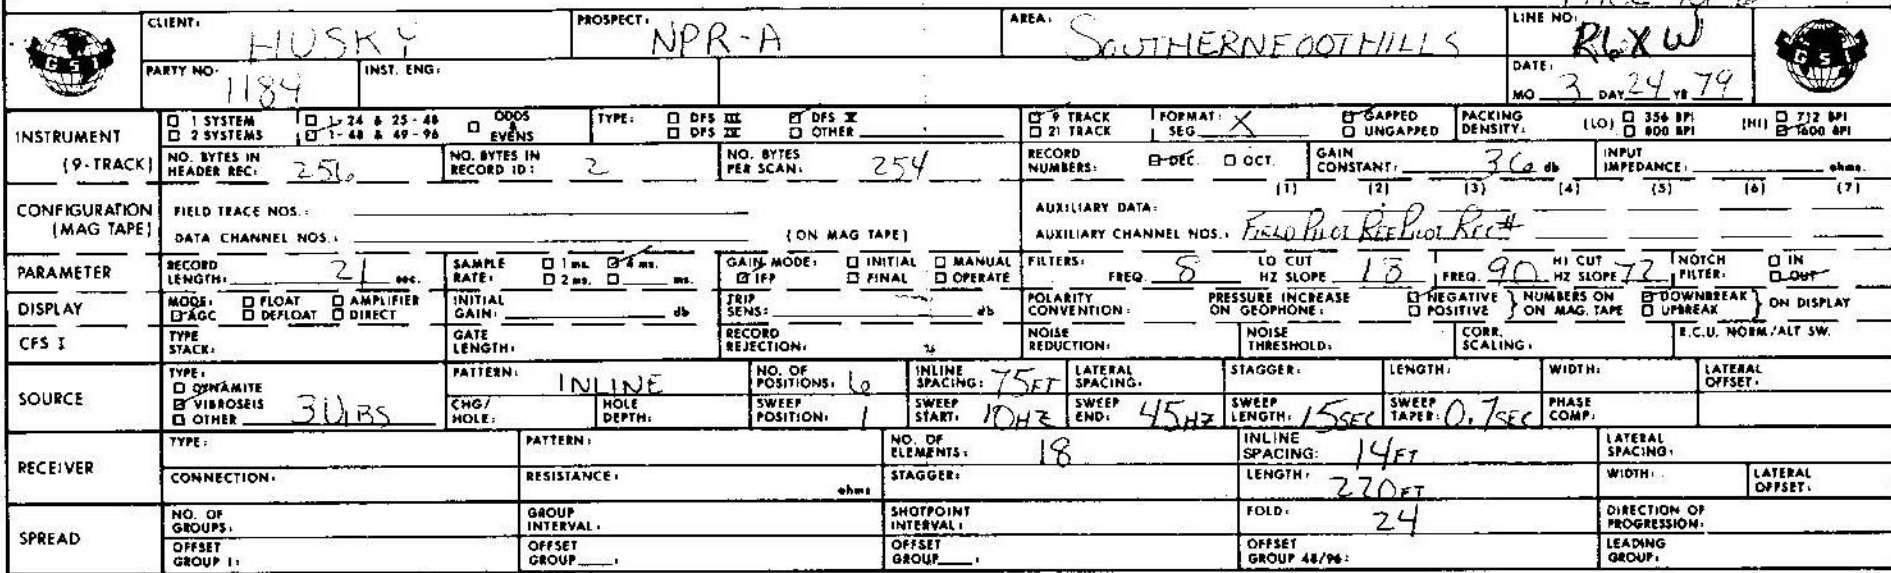 CLIENT: HUSKY PROSPECT: NPR-A AREA: SOUTHERNFOOTHILLS LINE NO: R6XW
GSI
PARTY NO: 1184 INST. ENG: DATE: MO 3 DAY 24 YR 79
GSI
INSTRUMENT (9-TRACK)
□ 1 SYSTEM □ 1-24 & 25-48 □ ODDS & EVENS TYPE: □ DFS III ☑ DFS V ☑ 9 TRACK FORMAT: SEG X ☑ GAPPED PACKING DENSITY: (LO) □ 356 BPI (HI) □ 712 BPI
□ 2 SYSTEMS ☑ 1-48 & 49-96 □ DFS IV □ OTHER □ 21 TRACK □ UNGAPPED □ 800 BPI ☑ 1600 BPI
NO. BYTES IN HEADER REC: 256 NO. BYTES IN RECORD ID: 2 NO. BYTES PER SCAN: 254 RECORD NUMBERS: ☑ DEC. □ OCT. GAIN CONSTANT: 36 db INPUT IMPEDANCE: ohms.
CONFIGURATION (MAG TAPE)
(1) (2) (3) (4) (5) (6) (7)
FIELD TRACE NOS.: AUXILIARY DATA:
DATA CHANNEL NOS.: (ON MAG TAPE) AUXILIARY CHANNEL NOS.: FIELD PILOT REF PILOT REC#
PARAMETER RECORD LENGTH: 21 sec. SAMPLE RATE: □ 1 ms. ☑ 4 ms. □ 2 ms. □ ms. GAIN MODE: □ INITIAL □ MANUAL ☑ IFP □ FINAL □ OPERATE FILTERS: FREQ. 8 LO CUT HZ SLOPE 18 FREQ. 90 HI CUT HZ SLOPE 72 NOTCH FILTER: □ IN ☑ OUT
DISPLAY MODE: □ FLOAT □ AMPLIFIER ☑ AGC □ DEFLOAT □ DIRECT INITIAL GAIN: db TRIP SENS: db POLARITY CONVENTION: PRESSURE INCREASE ON GEOPHONE: ☑ NEGATIVE □ POSITIVE } NUMBERS ON ON MAG. TAPE ☑ DOWNBREAK □ UPBREAK } ON DISPLAY
CFS I TYPE STACK: GATE LENGTH: RECORD REJECTION: % NOISE REDUCTION: NOISE THRESHOLD: CORR. SCALING: R.C.U. NORM/ALT SW.
SOURCE TYPE: □ DYNAMITE ☑ VIBROSEIS □ OTHER 3 VIBS PATTERN: INLINE NO. OF POSITIONS: 6 INLINE SPACING: 75FT LATERAL SPACING: STAGGER: LENGTH: WIDTH: LATERAL OFFSET:
CHG/HOLE: HOLE DEPTH: SWEEP POSITION: 1 SWEEP START: 10HZ SWEEP END: 45HZ SWEEP LENGTH: 15SEC SWEEP TAPER: 0.7SEC PHASE COMP:
RECEIVER TYPE: PATTERN: NO. OF ELEMENTS: 18 INLINE SPACING: 14FT LATERAL SPACING:
CONNECTION: RESISTANCE: ohms STAGGER: LENGTH: 220FT WIDTH: LATERAL OFFSET:
SPREAD NO. OF GROUPS: GROUP INTERVAL: SHOTPOINT INTERVAL: FOLD: 24 DIRECTION OF PROGRESSION:
OFFSET GROUP 1: OFFSET GROUP ____: OFFSET GROUP ____: OFFSET GROUP 48/96: LEADING GROUP: